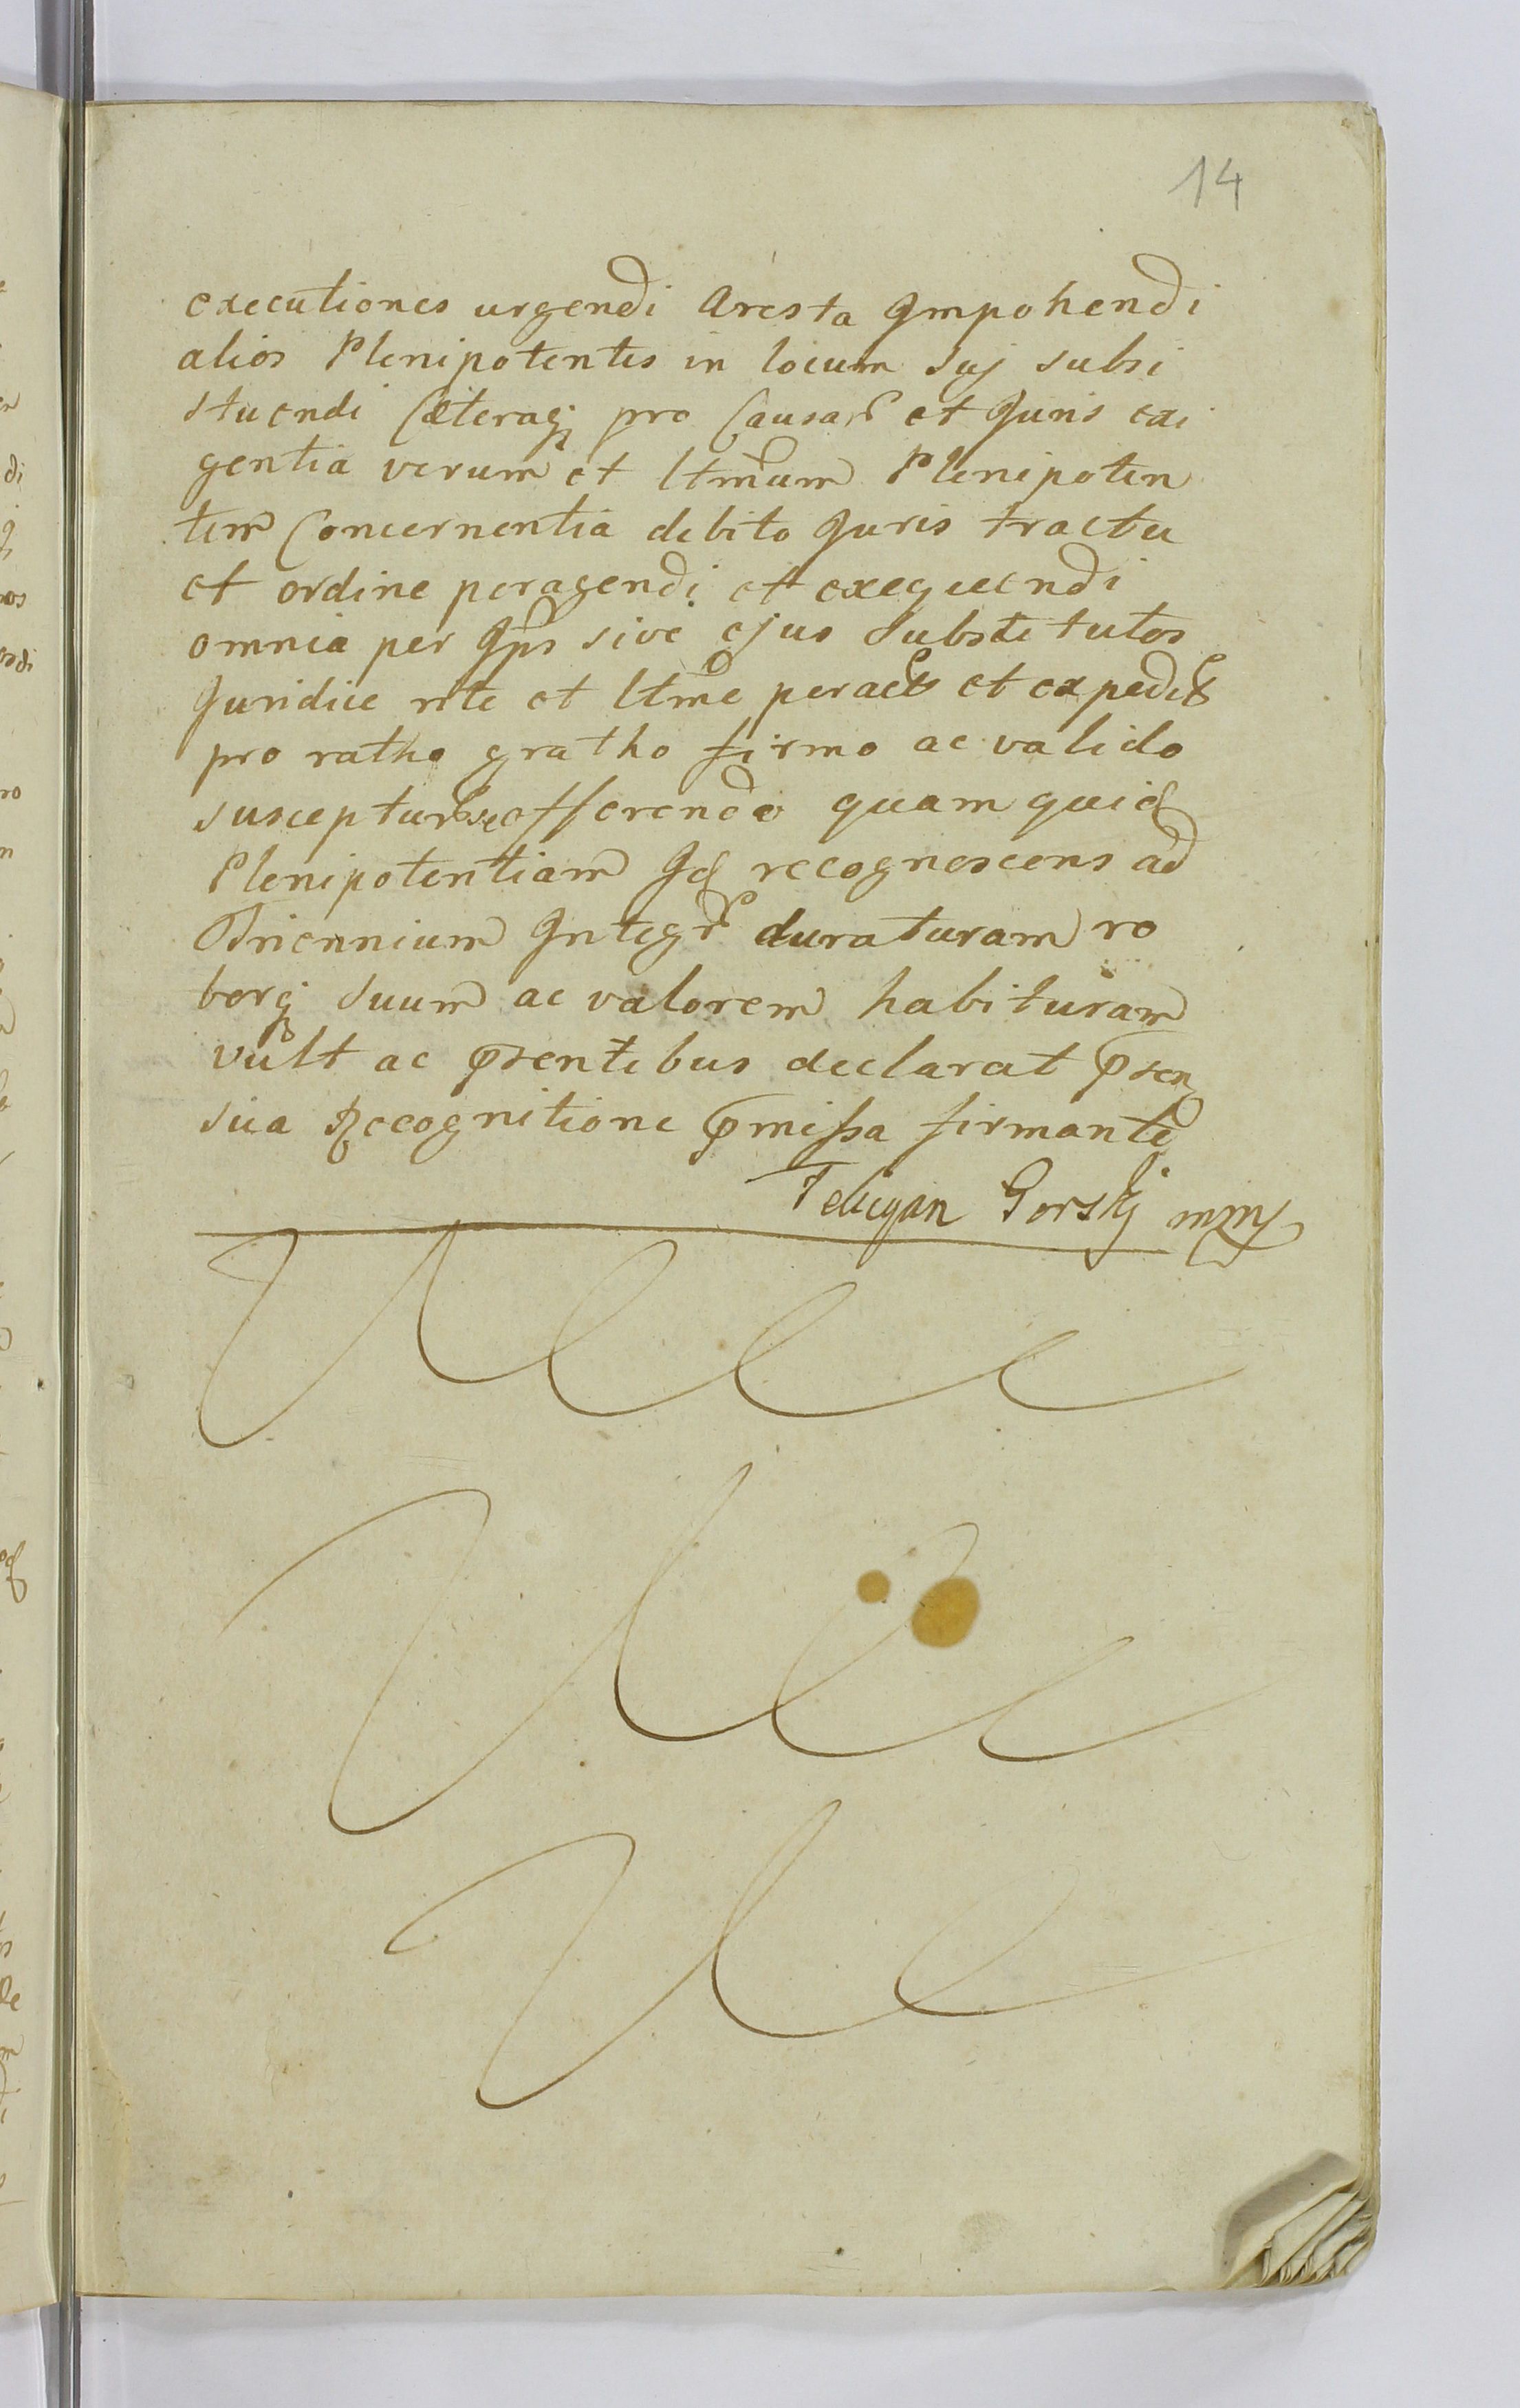 14
executiones urgendi Aresta Impohendi
alios Plenipotentes in locum Suj subsi
stuendi Cæteraq; pro Causar et Juris exi
gentia verum et ltmum Plenipoten
tem Concernentia debito Juris tractu
et ordine peragendi et exequendi
omnia per Ips sive ejus Substitutos
Juridice rite et ltme peract et expedit
pro ratho gratho firmo ac valido
suscept se offerendo quam quid
Plenipotentiam Id recognoscens ad
Triennium Integr duraturam ro
borq; suum ac valorem habituram
vult ac pñsentibus declarat pñsen
sua Recognitione pmissa firmante
Felicyan Gorskj mp